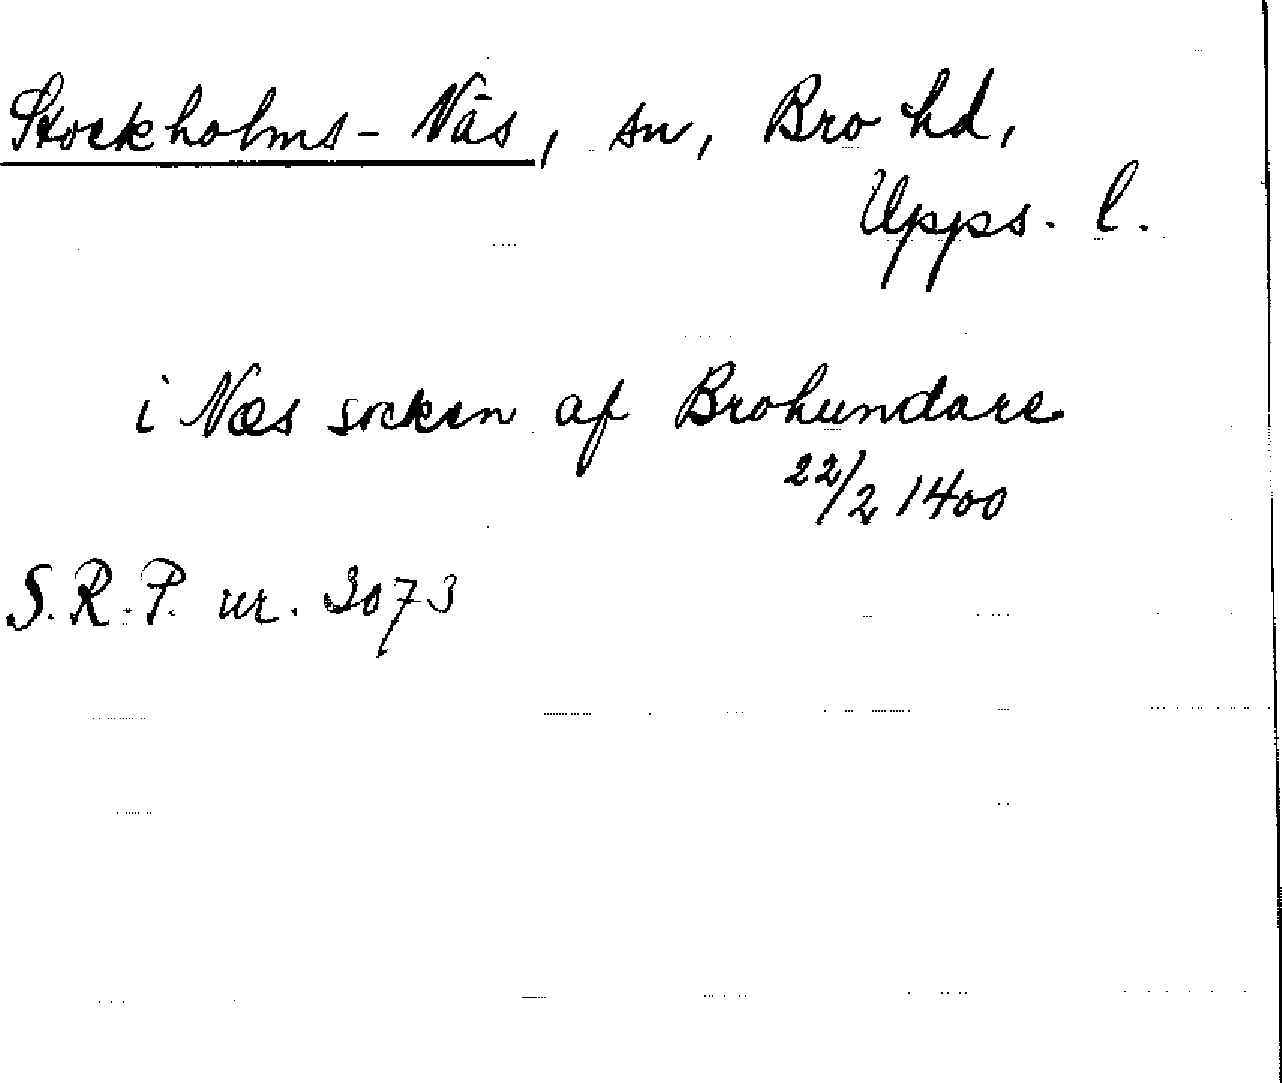 Stockholms-Näs, sn, Bro hd,
Upps. l.
i Næs sokn af Brohundare
22/2 1400
S.R.P. nr. 3073